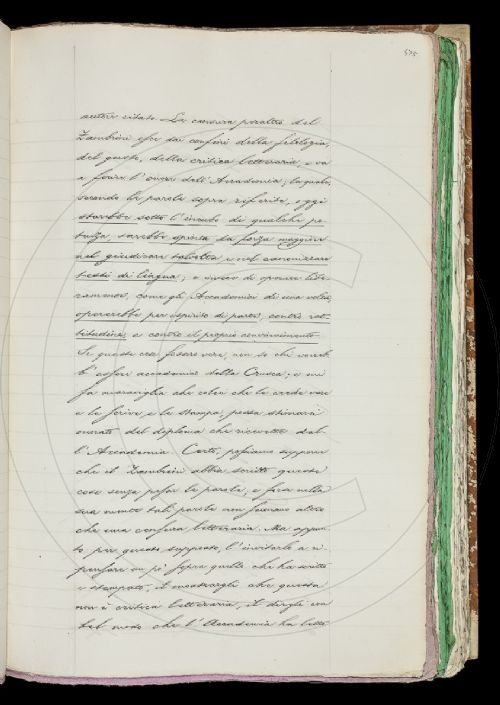 575
autore citato. La censura peraltro del
Zambrini esce dai confini della filologia,
del gusto, della critica letteraria, e va
a ferire l'onore dell'Accademia; la quale,
secondo le parole sopra riferite, oggi
starebbe sotto l'incubo di qualche pe-
tulza, sarebbe spinta da forza maggiore
nel giudicare talvolta e nel canonizzare
testi di lingua; e invece di operare libe-
ramente, come gli Accademici di una volta,
opererebbe per ispirito di parte, contro ret-
titudine, e contro il proprio convincimento.
Se questa cosa fosse vera, non so chi vorreb-
b'essere accademico della Crusca; e mi
fa maraviglia che colui che la crede vera
e la scrive e la stampa, possa stimarsi
onorato del diploma che ricevette dal-
l'Accademia. Certo, possiamo supporre
che il Zambrini abbia scritto queste
cose senza pesar le parole, e forse nella
sua mente tali parole non suonano altro
che una censura letteraria. Ma appun-
to per questo supposto, l'invitarlo a ri-
pensare un po' sopra quello che ha scritto
e stampato, il mostrargli che questa
non è critica letteraria, il dirgli con
bel modo che l'Accademia ha letto